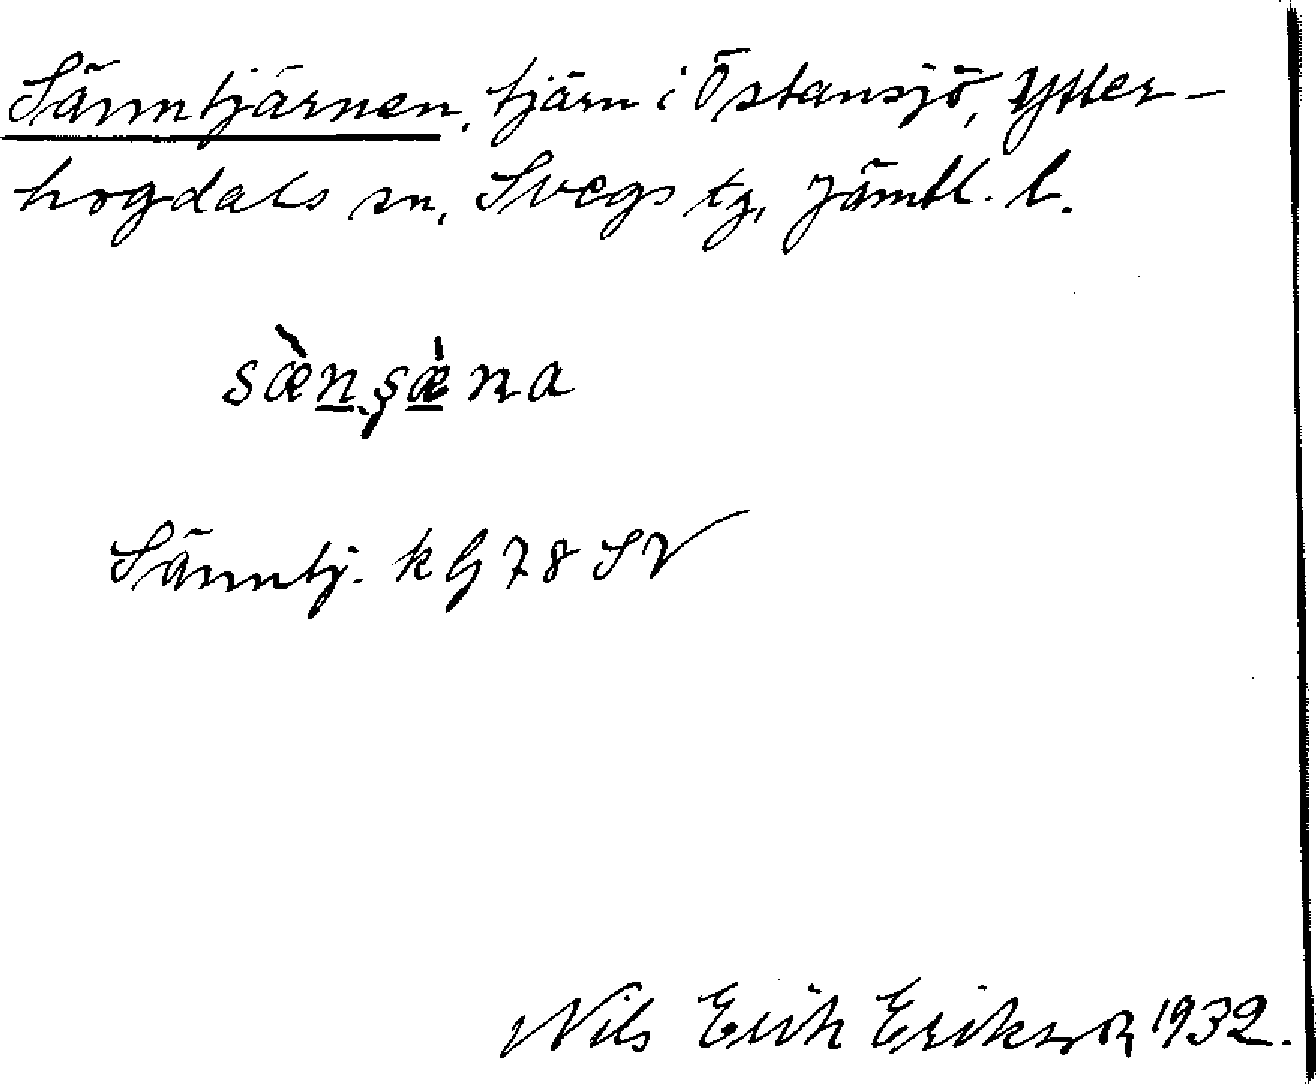 Sänntjärnen, tjärn i Östansjö, Ytter-
hogdals sn, Svegs tg, Jämtl. l.
sæ̀n̲ṣæ̲̀na
Sänntj. kG 78 SV
Nils Erik Erikson 1932.